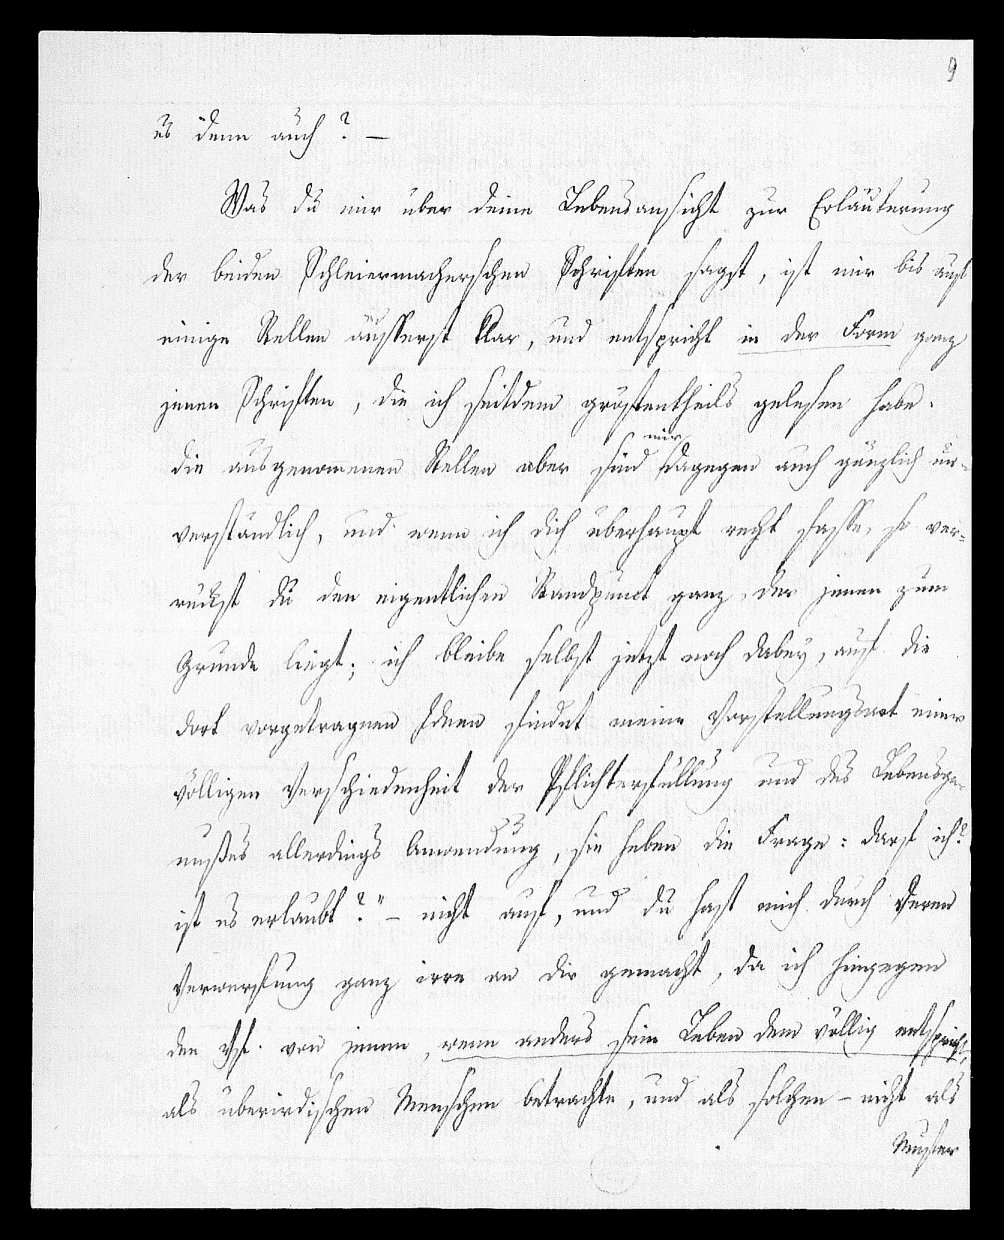 9
es denn auch? —
Was du mir über deine Lebensansicht zur Erläuterung
der beiden Schleiermacherschen Schriften sagst, ist mir bis auf
einige Stellen äusserst klar, und entspricht in der Form ganz
jenen Schriften, die ich seitdem gröstentheils gelesen habe.
die ausgenommenen Stellen aber sind mir dagegen auch gänzlich un-
verständlich, und wenn ich dich überhaupt recht fasse, so ver-
rückst du den eigentlichen Standpunct ganz, der jenen zum
Grunde liegt; ich bleibe selbst jetzt noch dabey, auf die
dort vorgetragnen Ideen findet meine Vorstellungsart einer
völligen Verschiedenheit der Pflichterfüllung und des Lebensge-
nußes allerdings Anwendung, sie heben die Frage: darf ich?
ist es erlaubt?" – nicht auf, und du hast mich durch deren
Verwerfung ganz irre an dir gemacht, da ich hingegen
den Vf. von jenen, wenn anders sein Leben dem völlig entspricht,
als überirdischen Menschen betrachte, und als solchen – nicht als
Muster